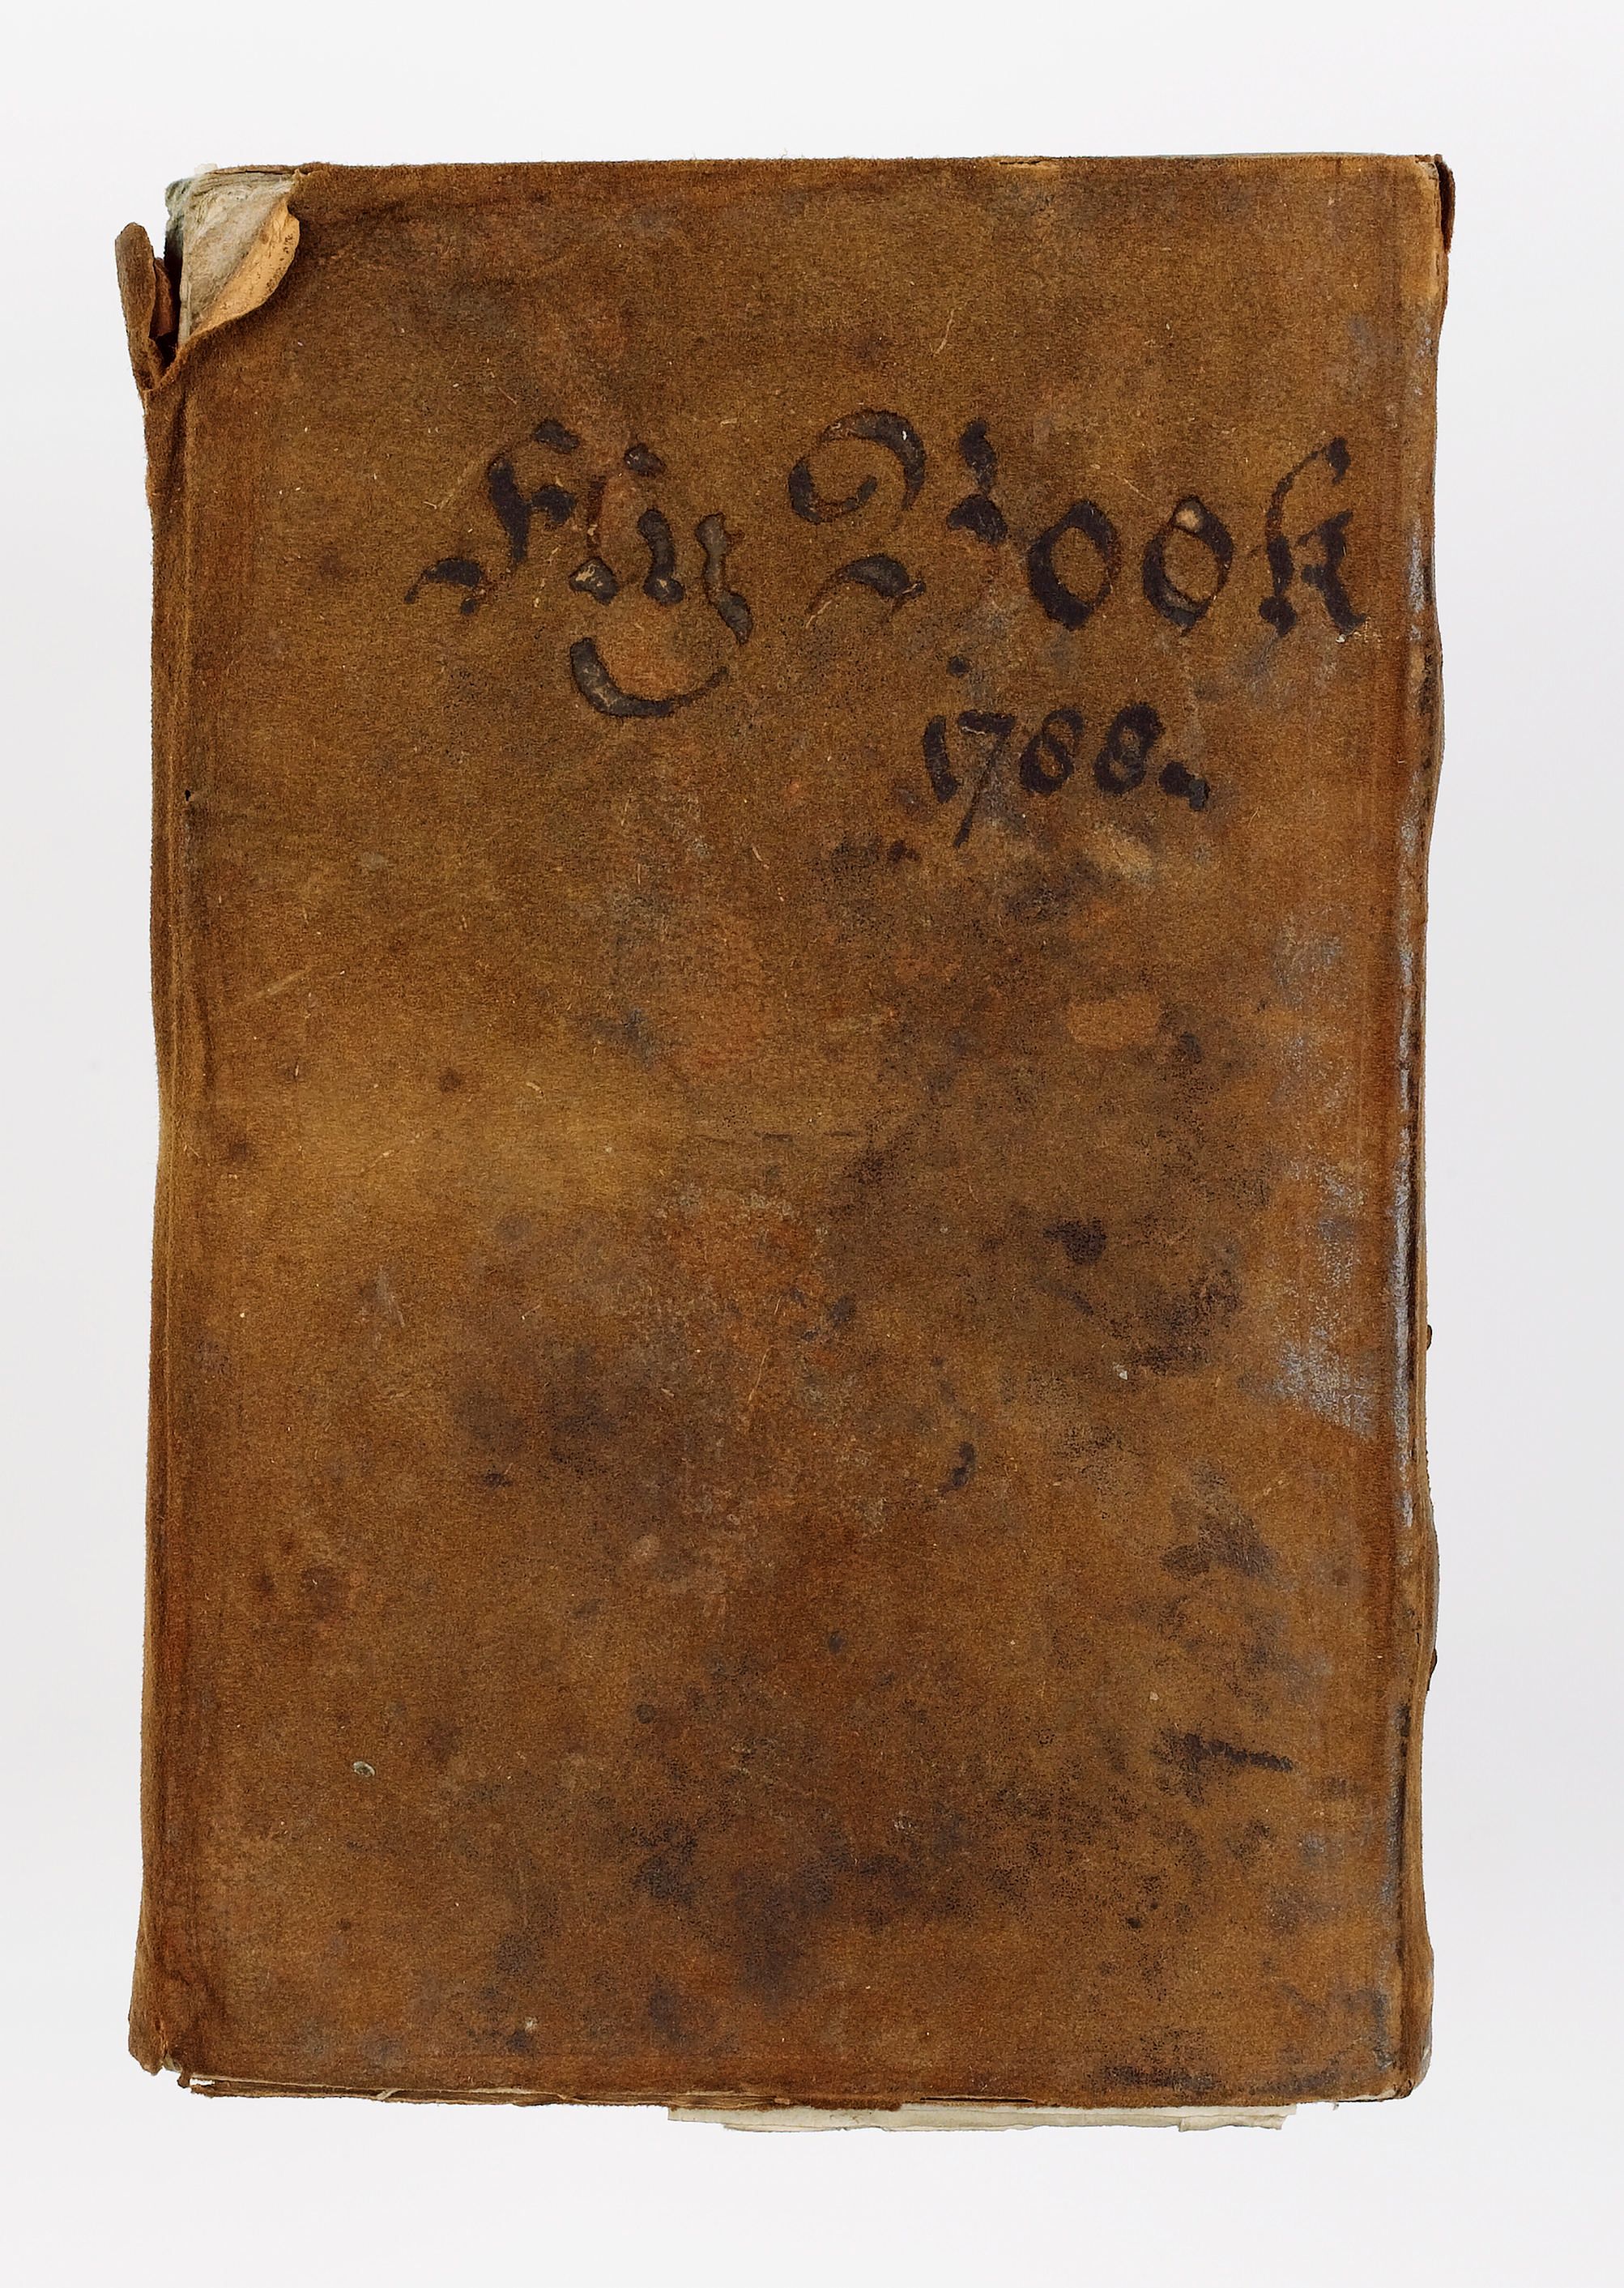 Fly Book
1788.